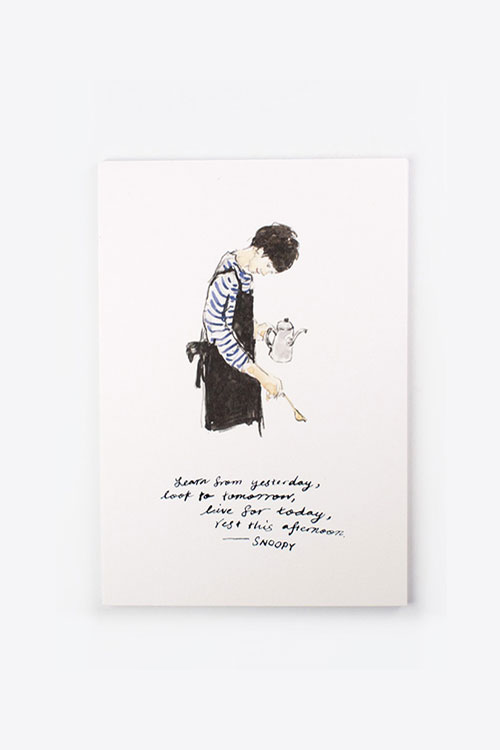 Learn from yesterday,
look to tomorrow,
live for today,
rest this afternoon.
— SNOOPY